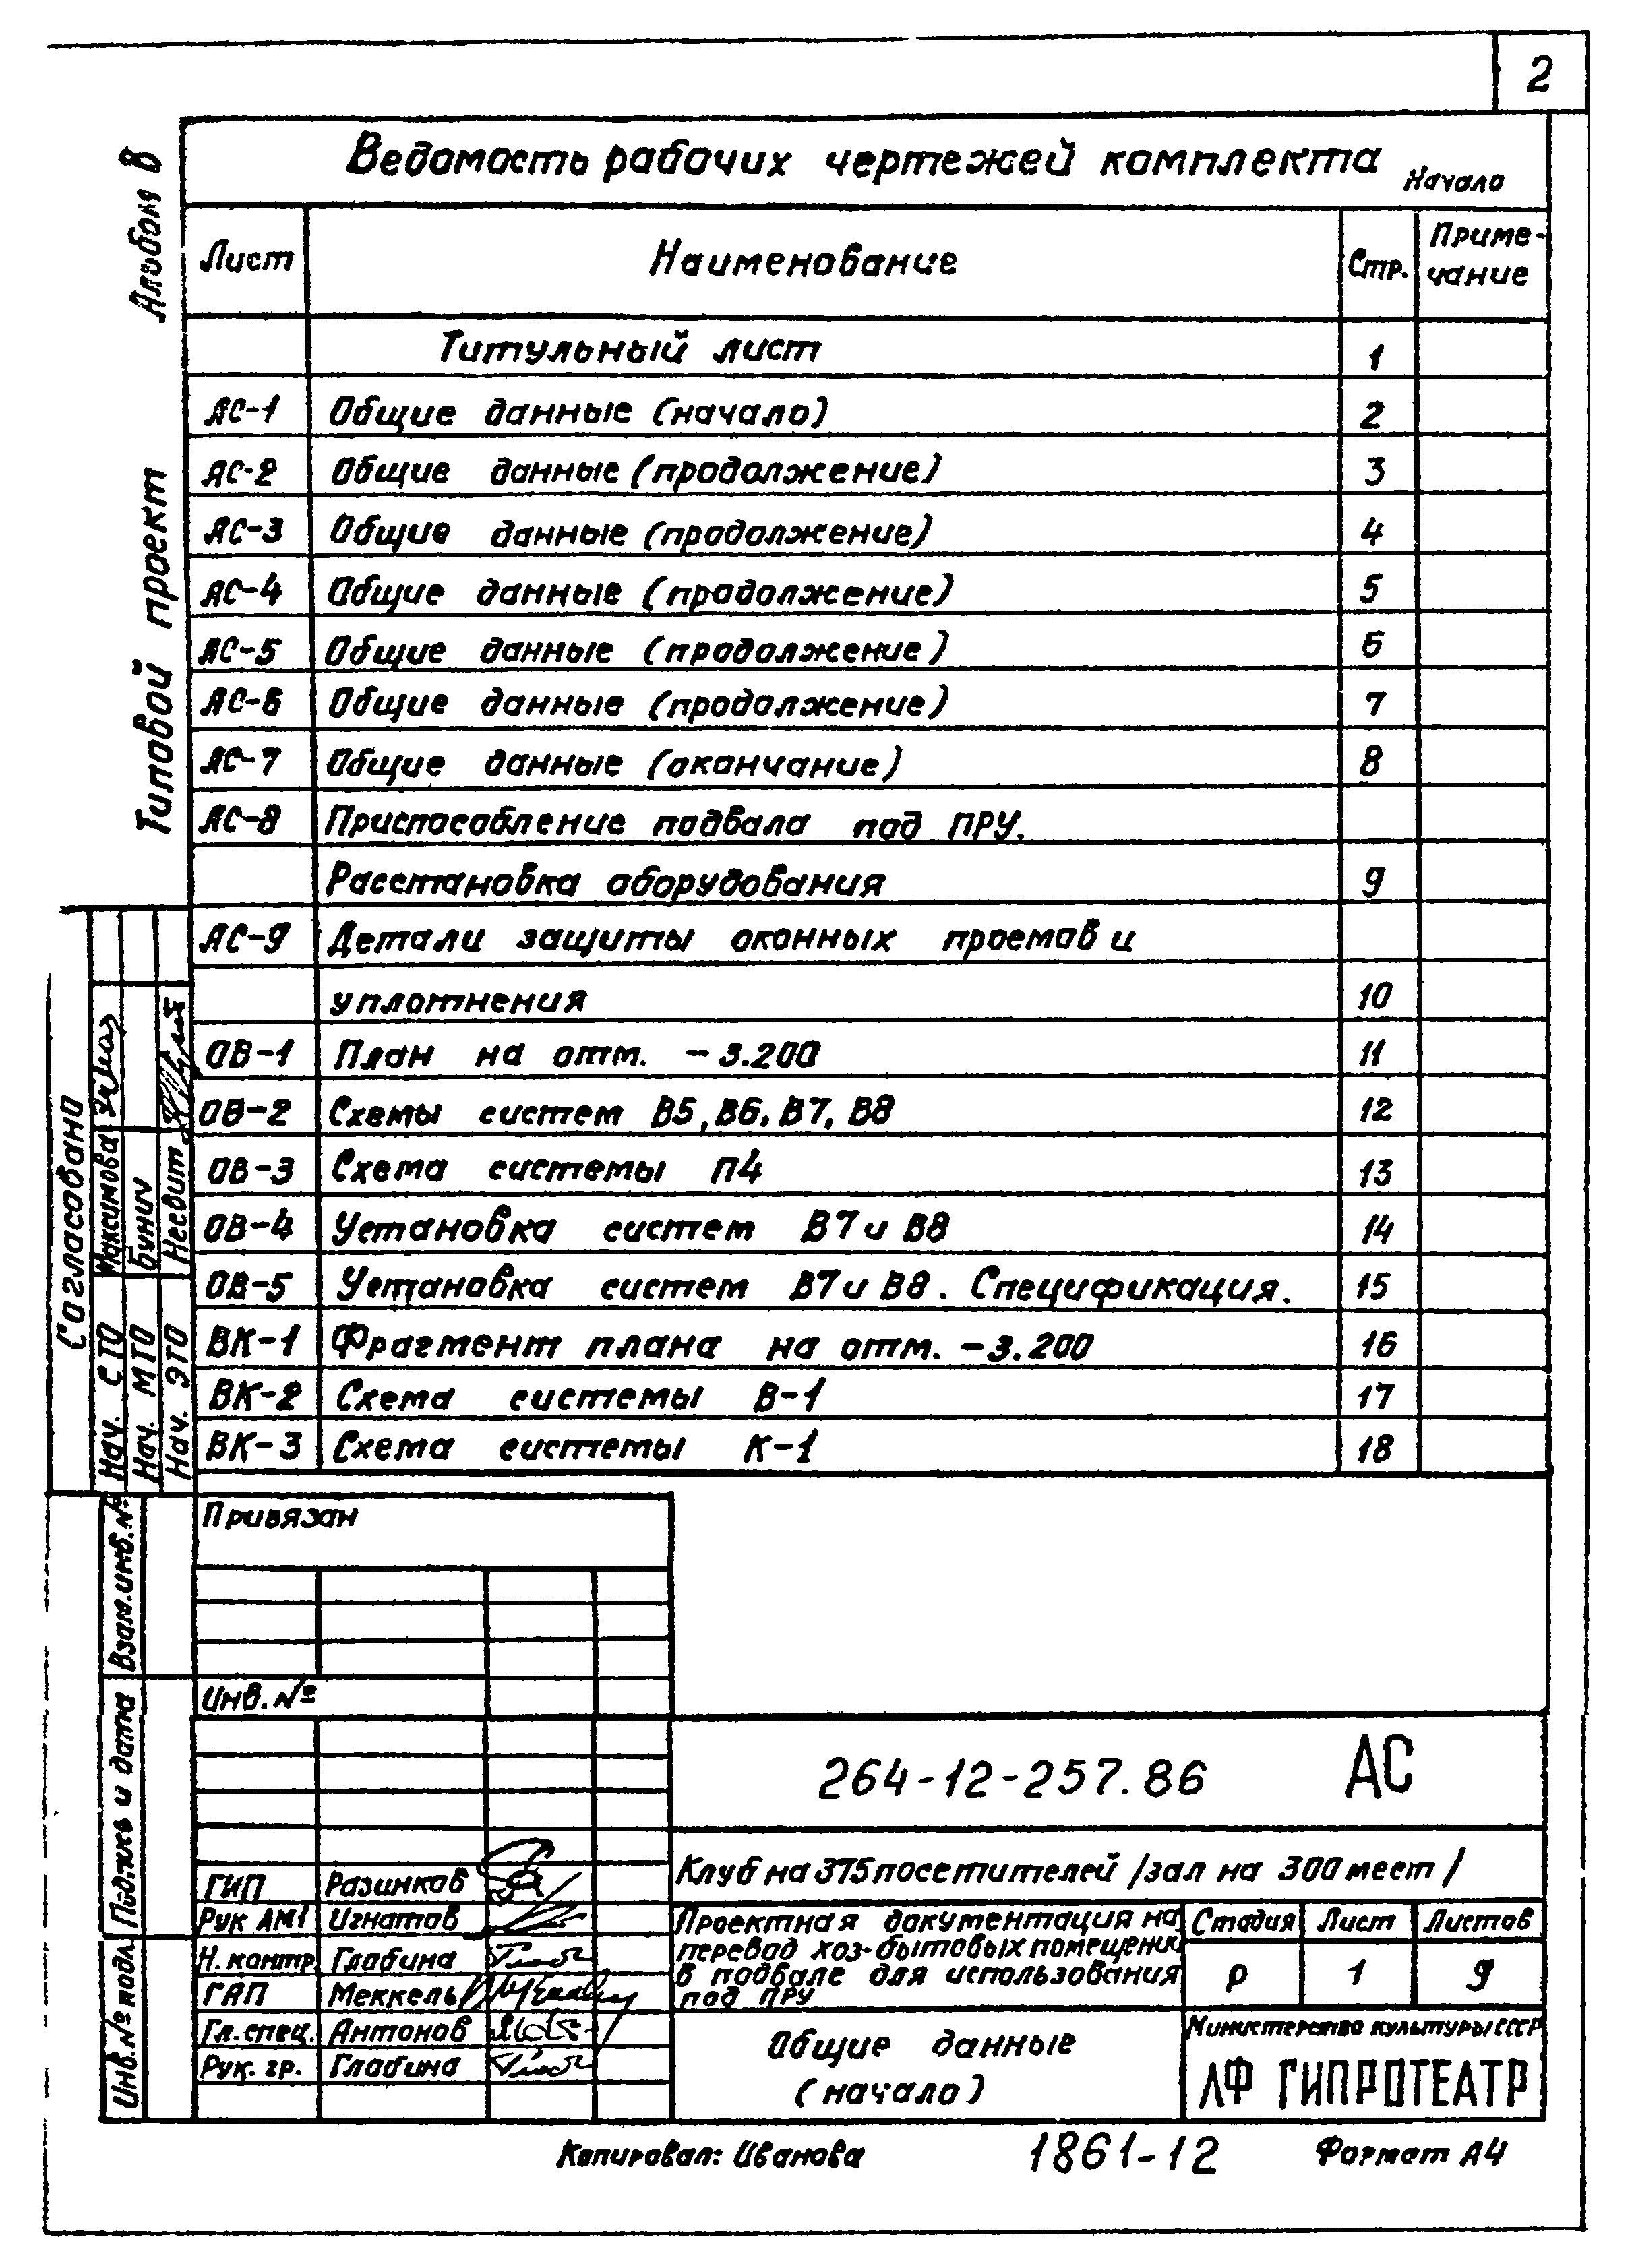 2
Альбом В
Типовой проект
Ведомость рабочих чертежей комплекта Начало
Лист Наименование Стр. Приме-
чание
Титульный лист 1
АС-1 Общие данные (начало) 2
АС-2 Общие данные (продолжение) 3
АС-3 Общие данные (продолжение) 4
АС-4 Общие данные (продолжение) 5
АС-5 Общие данные (продолжение) 6
АС-6 Общие данные (продолжение) 7
АС-7 Общие данные (окончание) 8
АС-8 Приспособление подвала под ПРУ.
Расстановка оборудования 9
АС-9 Детали защиты оконных проемов и
уплотнения 10
ОВ-1 План на отм. -3.200 11
ОВ-2 Схемы систем В5, В6, В7, В8 12
ОВ-3 Схема системы П4 13
ОВ-4 Установка систем В7 и В8 14
ОВ-5 Установка систем В7 и В8. Спецификация. 15
ВК-1 Фрагмент плана на отм. -3.200 16
ВК-2 Схема системы В-1 17
ВК-3 Схема системы К-1 18
Согласовано
Нач. СТО Максимова
Нач. МТО Бунин
Нач. ЭТО Несвит
Взам.инв.№
Подпись и дата
Инв.№ подл.
Привязан
Инв.№
264-12-257.86 АС
Клуб на 375 посетителей /зал на 300 мест/
ГИП Разинков
Рук АМ1 Игнатов
Н. контр. Глабина
ГАП Меккель
Гл.спец. Антонов
Рук. гр. Глабина
Проектная документация на
перевод хоз-бытовых помещений
в подвале для использования
под ПРУ
Стадия Лист Листов
Р 1 9
Общие данные
(начало)
Министерство культуры СССР
ЛФ ГИПРОТЕАТР
Копировал: Иванова 1861-12 Формат А4